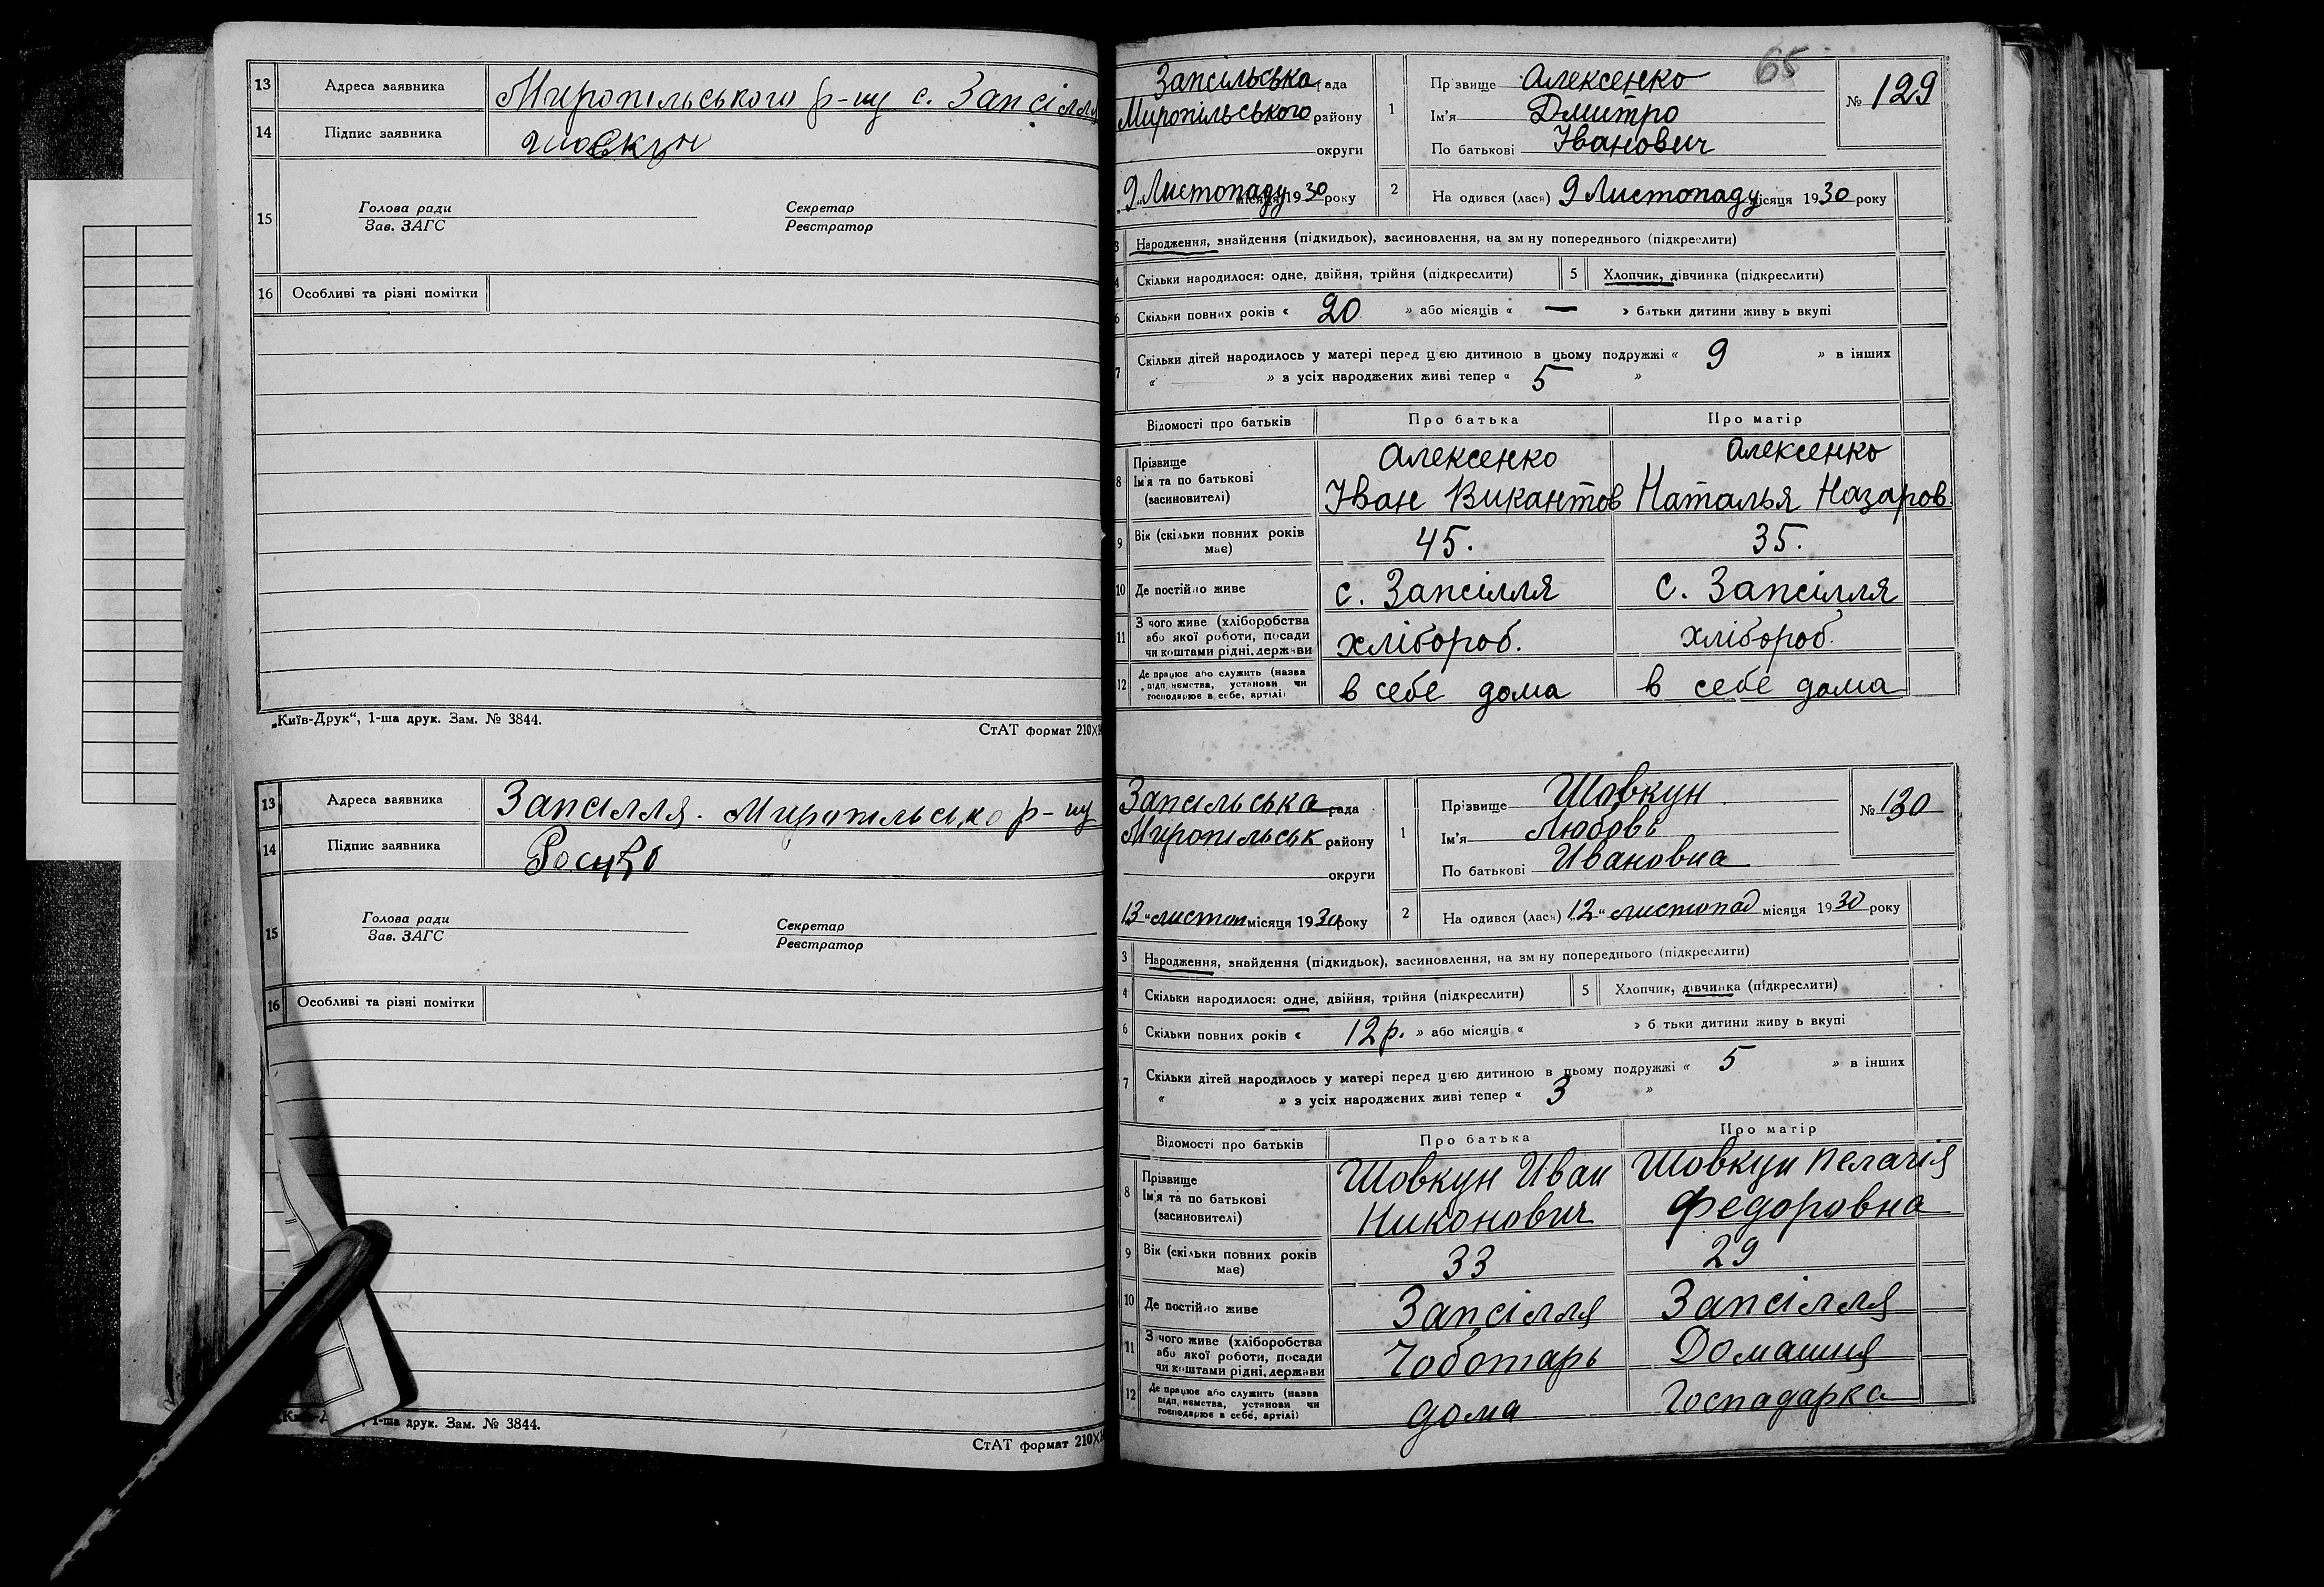 13 Адреса заявника Миропільського р-ну с. Запсілля
14 Підпис заявника
15 Голова ради Секретар
Зав. ЗАГС Реєстратор
16 Особливі та різні помітки
„Київ-Друк“, 1-ша друк. Зам. № 3844.
СтАТ формат 210×
13 Адреса заявника Запсілля. Миропільсько р-ну
14 Підпис заявника
15 Голова ради Секретар
Зав. ЗАГС Реєстратор
16 Особливі та різні помітки
1-ша друк. Зам. № 3844.
СтАТ формат 210×
65
Запсільська рада
Миропільського району
округи
„9„ Листопаду місяця 1930 року
1 Прізвище Алексенко
Ім'я Дмитро
По батькові Іванович
№ 129
2 На одився (лася) 9 Листопаду місяця 1930 року
3 Народження, знайдення (підкидьок), засиновлення, на зм ну попереднього (підкреслити)
4 Скільки народилося: одне, двійня, трійня (підкреслити) 5 Хлопчик, дівчинка (підкреслити)
6 Скільки повних років « 20 » або місяців « — » батьки дитини живу ь вкупі
7 Скільки дітей народилось у матері перед цією дитиною в цьому подружжі « 9 » в інших
« » з усіх народжених живі тепер « 5 »
Відомості про батьків Про батька Про матір
8 Прізвище Ім'я та по батькові (засиновителі) Алексенко Алексенко
Іван Викантов Наталья Назаров.
9 Вік (скільки повних років має) 45. 35.
10 Де постійно живе с. Запсілля с. Запсілля
11 З чого живе (хліборобства або якої роботи, посади чи коштами рідні, держави хлібороб. хлібороб.
12 Де працює або служить (назва підп иємства, установи чи господарює в себе, артілі) в себе дома в себе дома
Запсільська рада
Миропільськ району
округи
13 „ листоп місяця 1930 року
1 Прізвище Шовкун
Ім'я Любовь
По батькові Ивановна
№ 130
2 На одився (лася) „12„ листопад місяця 1930 року
3 Народження, знайдення (підкидьок), засиновлення, на зм ну попереднього (підкреслити)
4 Скільки народилося: одне, двійня, трійня (підкреслити) 5 Хлопчик, дівчинка (підкреслити)
6 Скільки повних років « 12 р. » або місяців « » б тьки дитини живу ь вкупі
7 Скільки дітей народилось у матері перед цією дитиною в цьому подружжі « 5 » в інших
« » з усіх народжених живі тепер « 3 »
Відомості про батьків Про батька Про матір
8 Прізвище Ім'я та по батькові (засиновителі) Шовкун Иван Шовкун Пелагія
Никонович Федоровна
9 Вік (скільки повних років має) 33 29
10 Де постійно живе Запсілля Запсілля
11 З чого живе (хліборобства або якої роботи, посади чи коштами рідні, держави Чоботарь Домашня
12 Де працює або служить (назва підп иємства, установи чи господарює в себе, артілі) дома Господарка